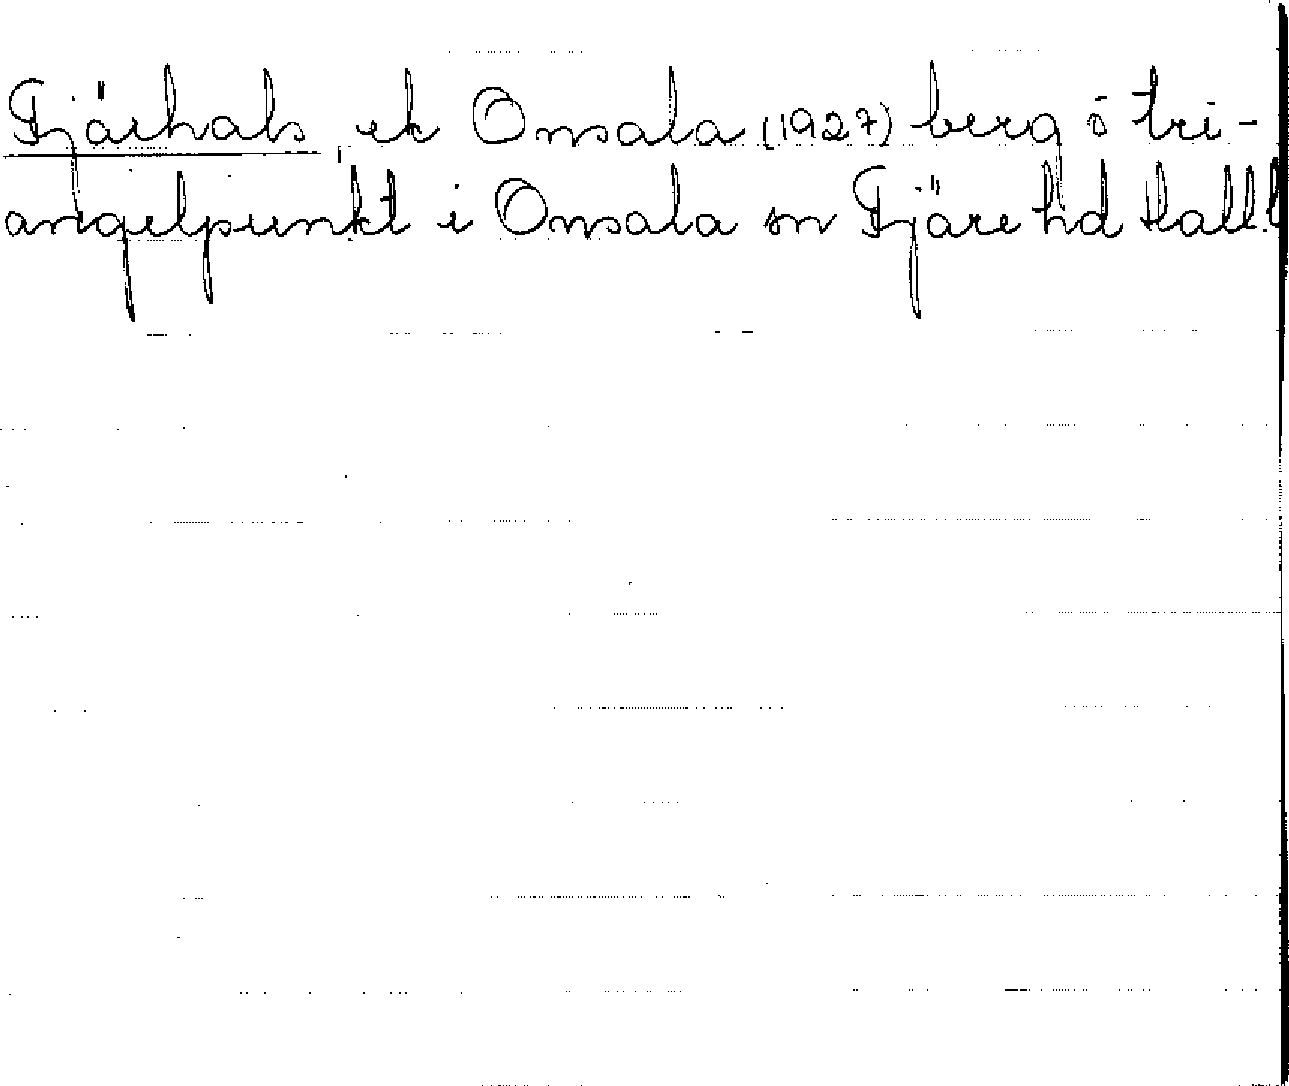 Fjärhals, ek Onsala (1927) berg o tri-
angelpunkt i Onsala sn Fjäre hd Hall.l